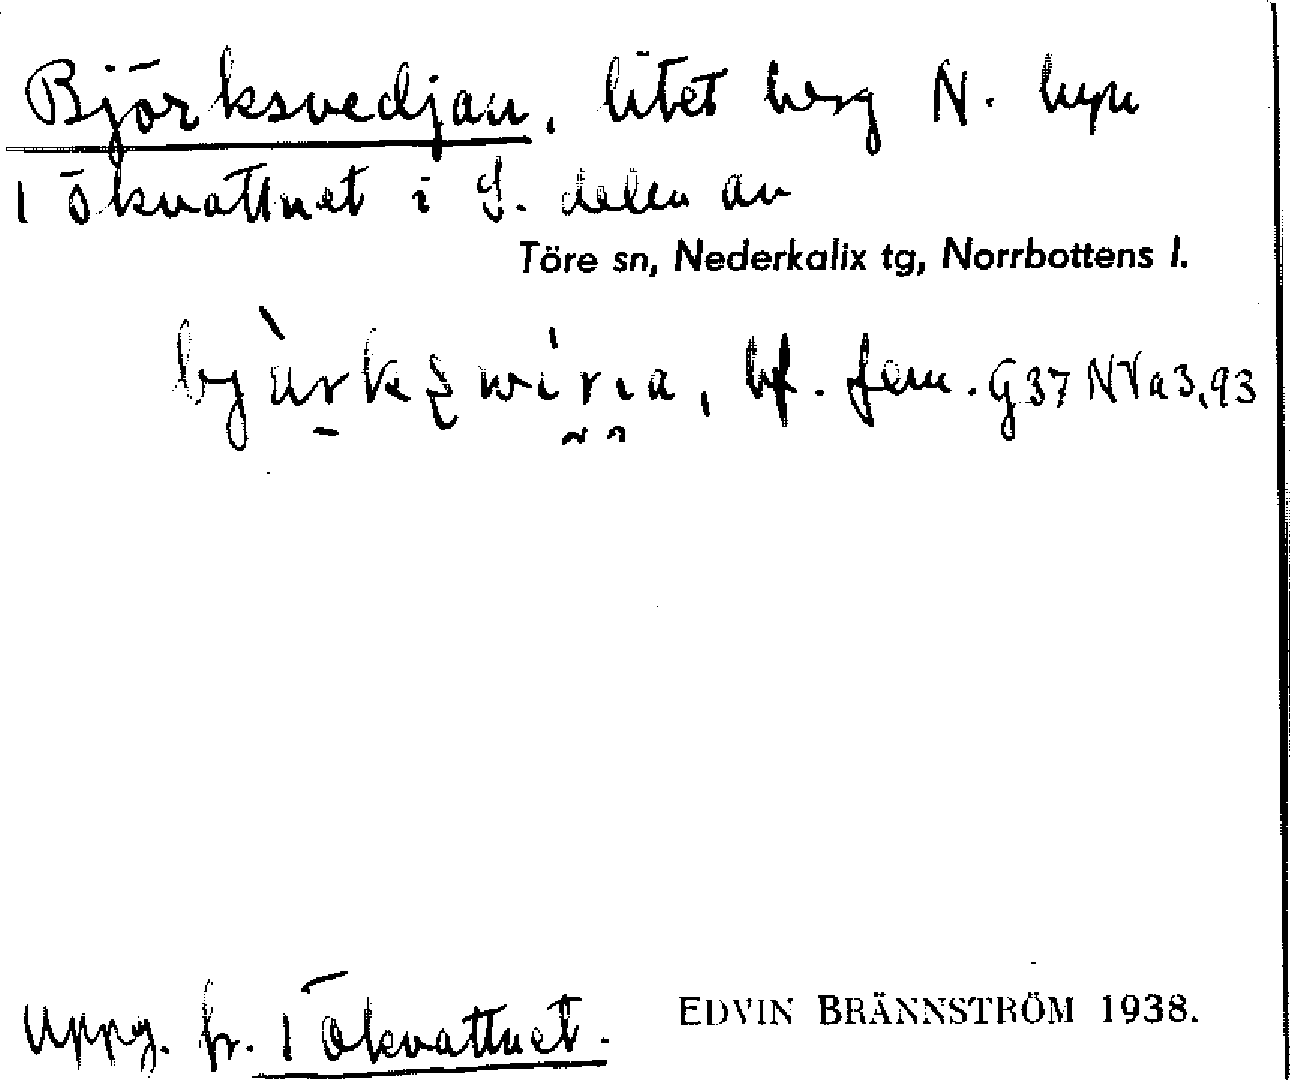 Björksvedjan, litet berg N. byn
1 Ökvattnet i S. delen av
Töre sn, Nederkalix tg, Norrbottens l.
bf. fem. G37 NVa3,93
Uppg. fr. 1 Ökvattnet. EDVIN BRÄNNSTRÖM 1938.